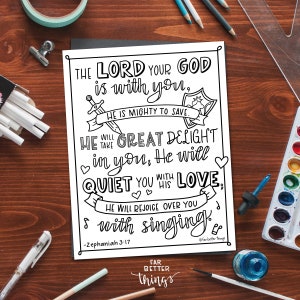 FAR BETTER
things
THE LORD YOUR GOD
is with you,
HE IS MIGHTY TO SAVE
HE WILL TAKE GREAT DELIGHT
in you, He will
QUIET YOU WITH HIS LOVE,
HE WILL REJOICE OVER YOU
with singing.
-Zephaniah 3:17
FAR
BETTER
things